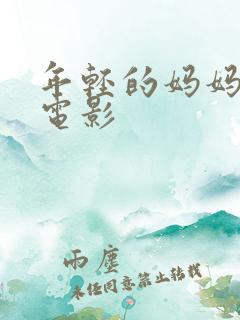 年轻的妈妈
電影
雨塵
未经同意禁止转载